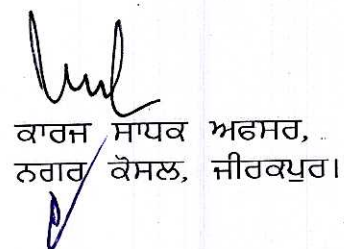 ਕਾਰਜ ਸਾਧਕ ਅਫਸਰ,
ਨਗਰ ਕੋਸਲ, ਜੀਰਕਪੁਰ।